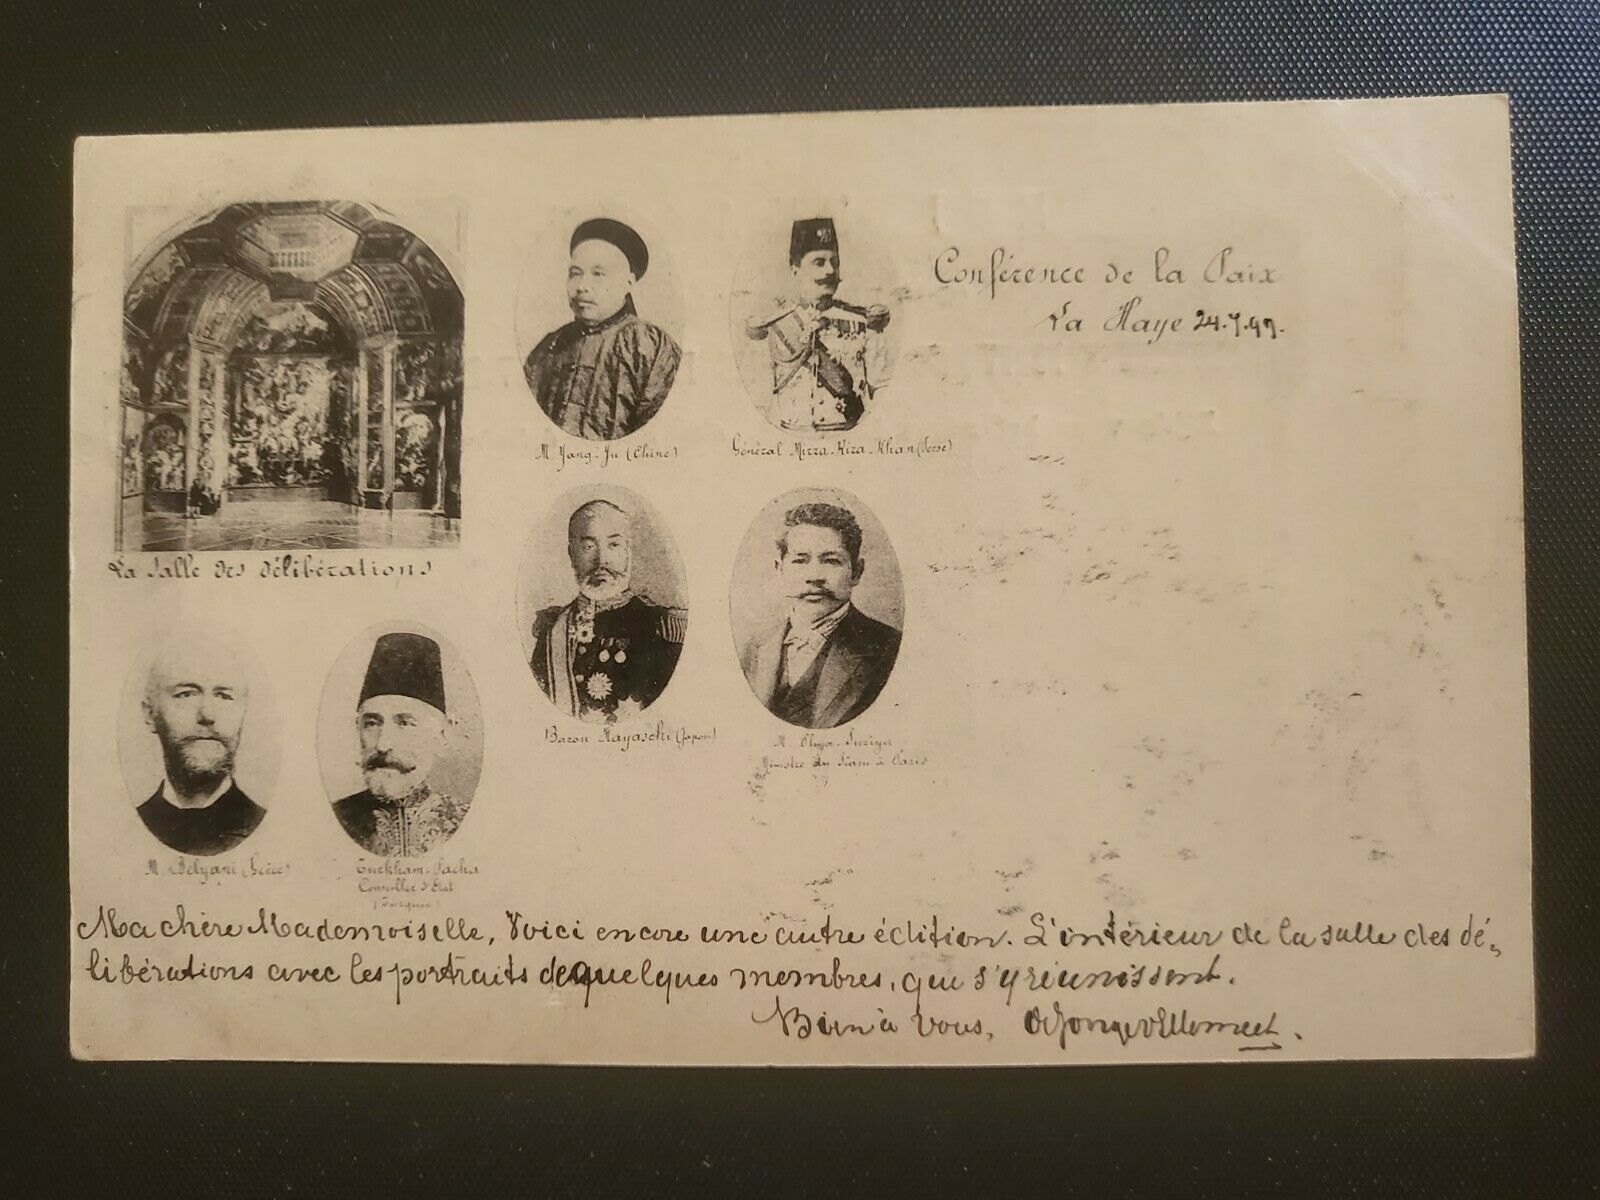 Conférence de la Paix
La Haye 24.7.99.
M. Yang-Yu (Chine)
Général Mirza-Riza-Khan (Perse)
La Salle des délibérations
Baron Hayaschi (Japon)
M. Phya-Suriya
Ministre du Siam à Paris
M. Delyani (Grèce)
Turkham-Pacha
Conseiller d'Etat
(Turquie)
Ma chère Mademoiselle, Voici encore une autre édition. L'intérieur de la salle des dé-
libérations avec les portraits de quelques membres, qui s'y réunissent.
Bien à vous,